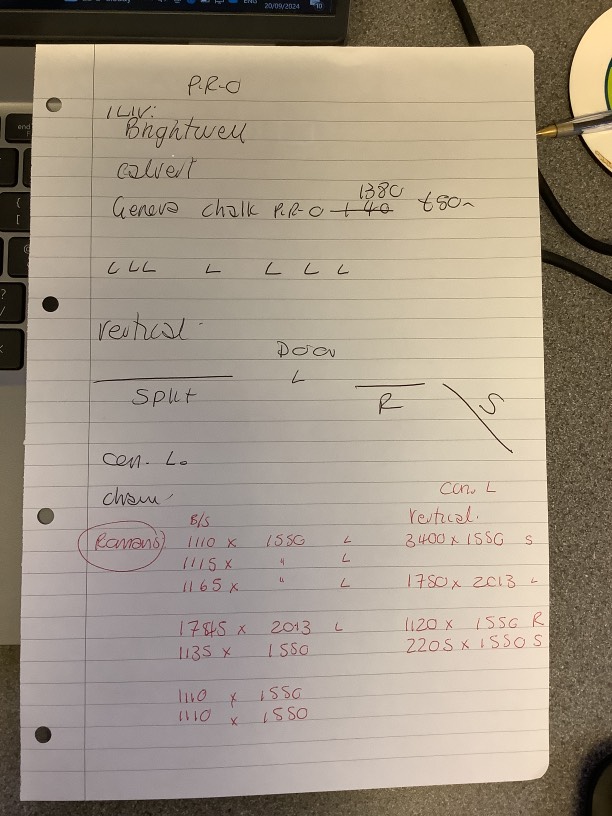 20/09/2024
P.R-O
Brightwell
calvert
Geneva chalk P.R-O 1380 £80
L L L L L L L
Vertical.
Door
L
Split
R
S
Can. L.
Can. L
B/S
Vertical.
1110 x 1550 L
3400 x 1550 S
1115 x " L
1165 x " L
1780 x 2013 L
1785 x 2013 L
1120 x 1550 R
1135 x 1550
2205 x 1550 S
1110 x 1550
1110 x 1550